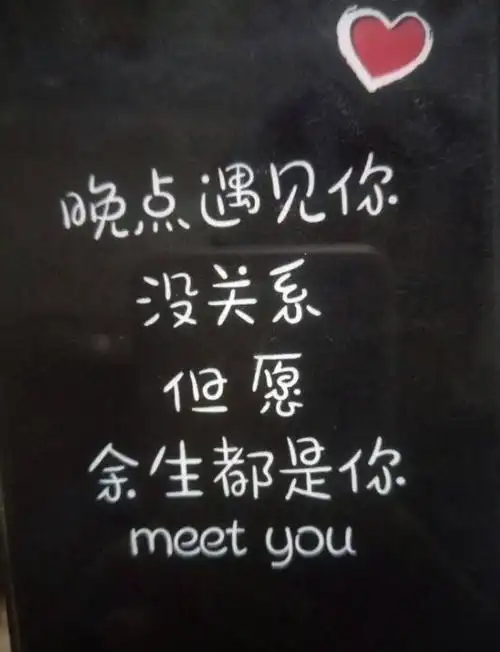 晚点遇见你
没关系
但愿
余生都是你
meet you